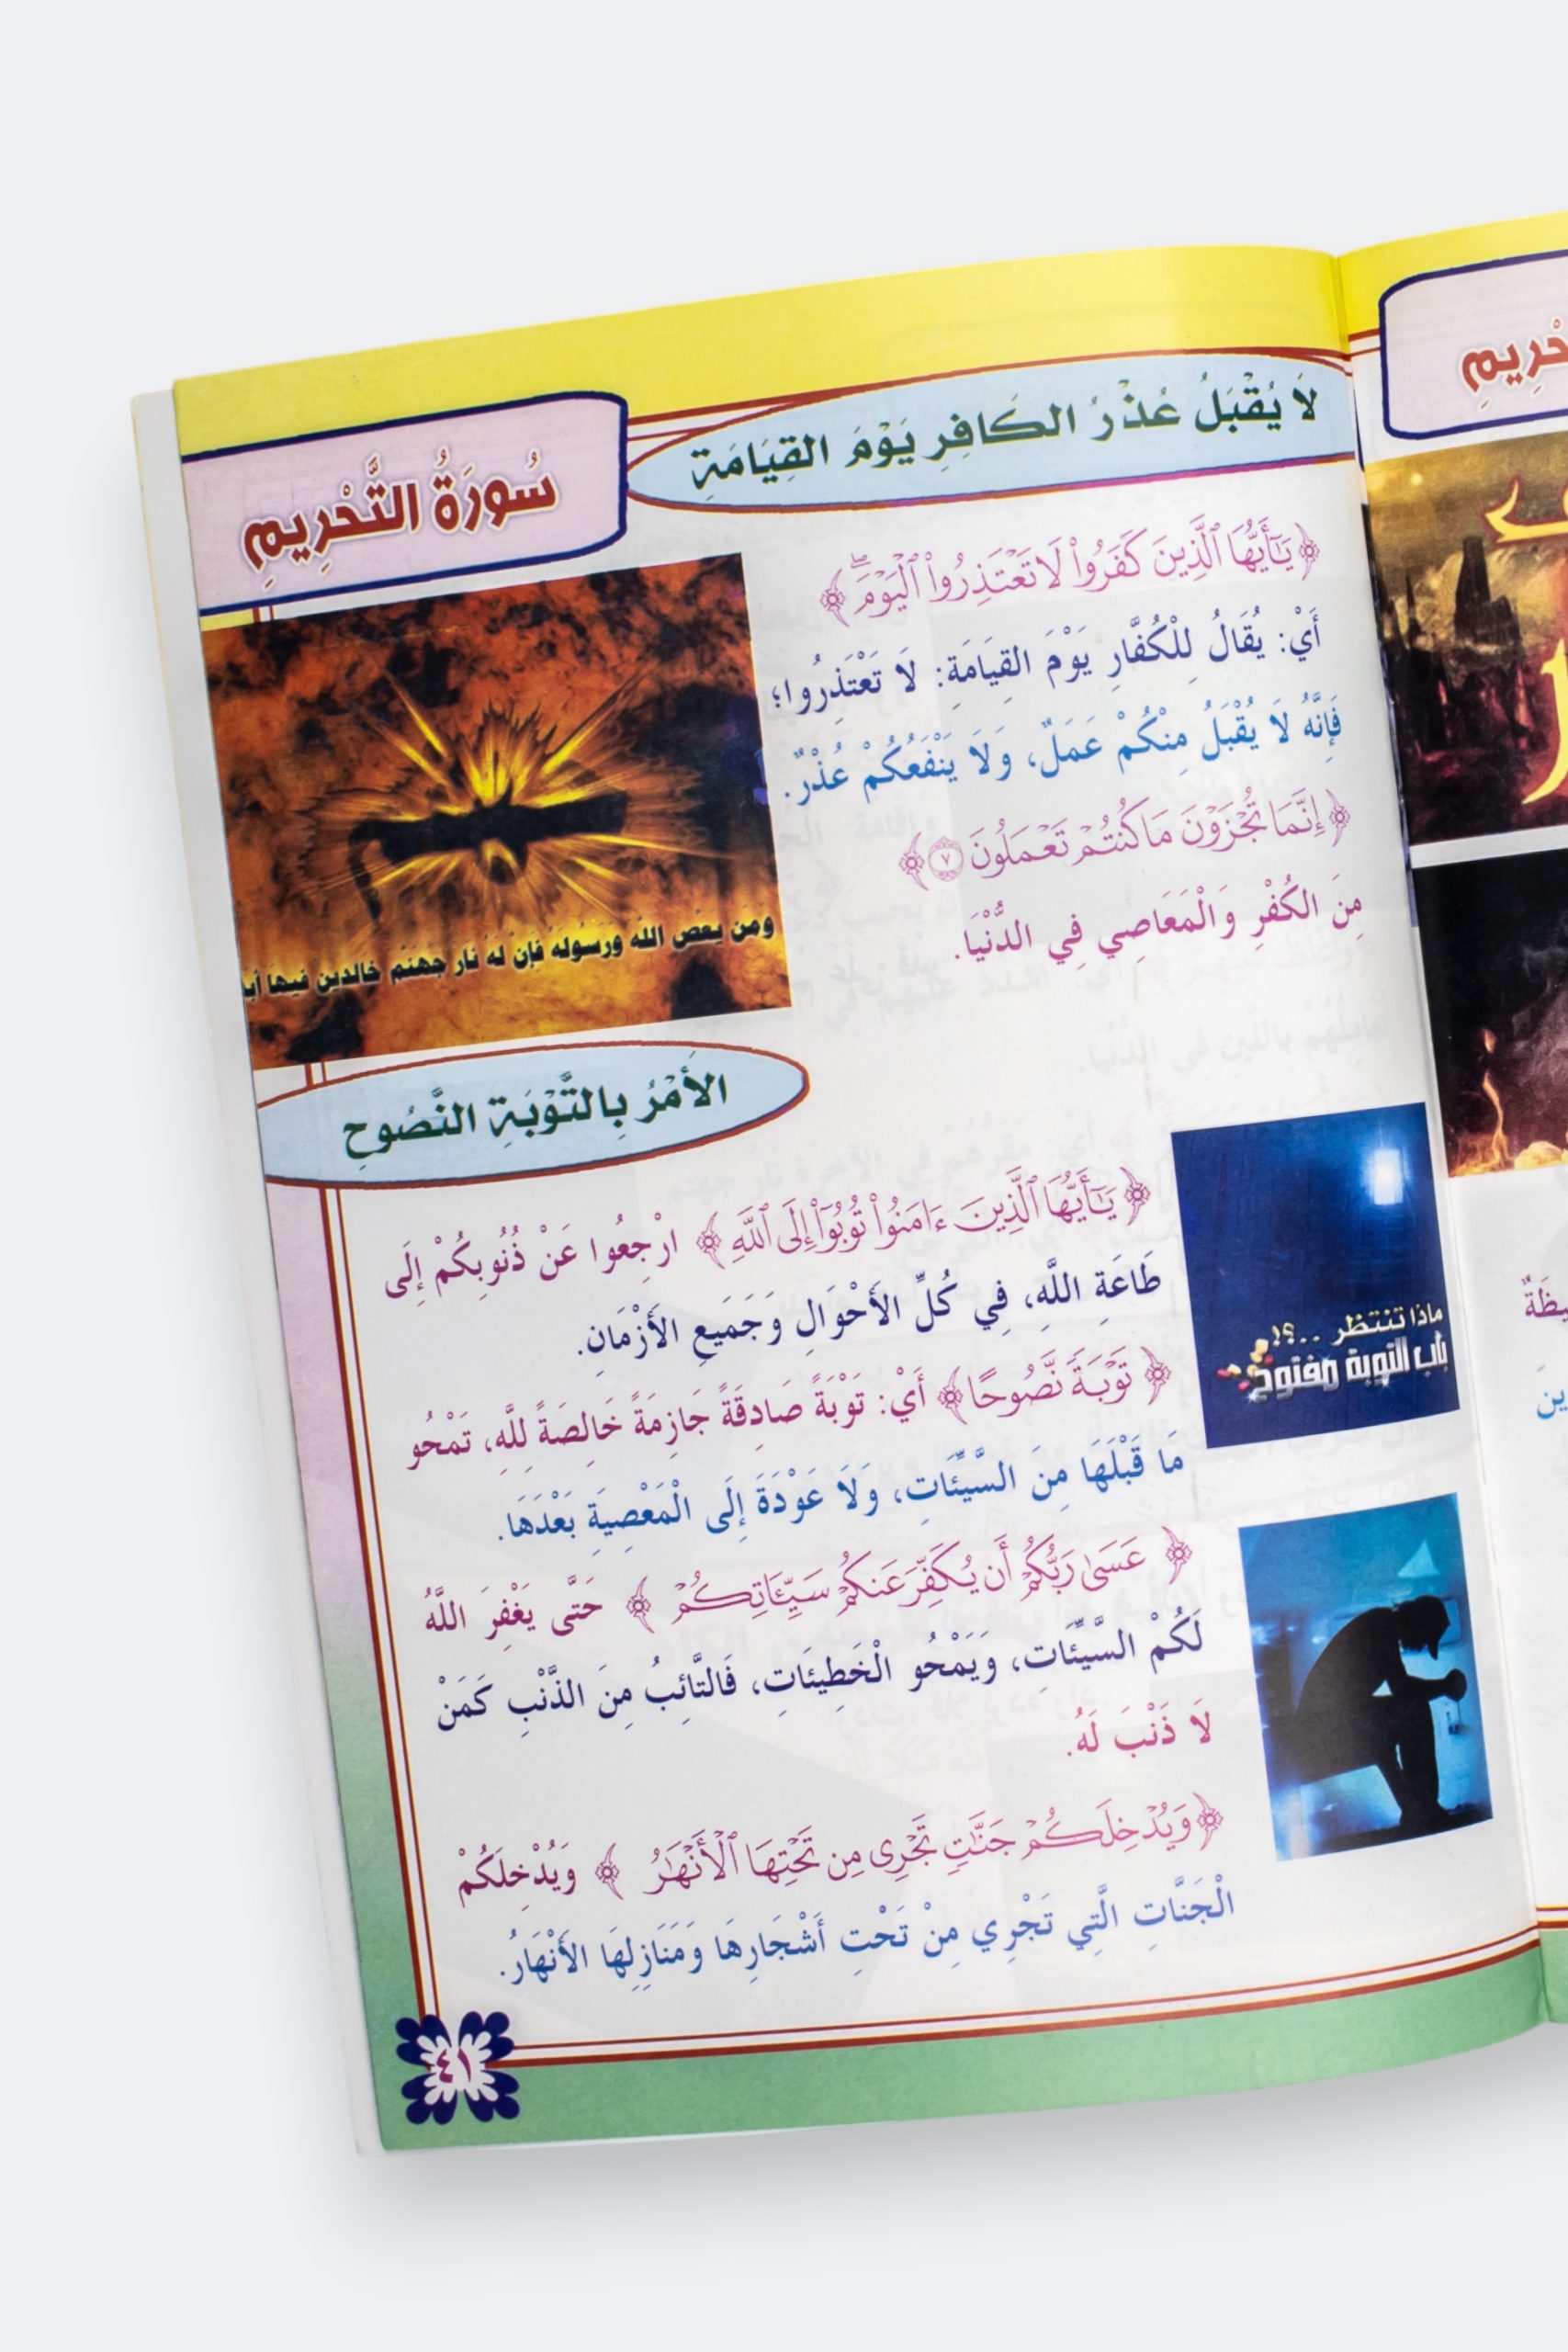 سُورَةُ التَّحْرِيمِ
لَا يُقْبَلُ عُذْرُ الكَافِرِ يَوْمَ القِيَامَةِ
﴿يَٰٓأَيُّهَا ٱلَّذِينَ كَفَرُواْ لَا تَعْتَذِرُواْ ٱلْيَوْمَۖ﴾
أَيْ: يُقَالُ لِلْكُفَّارِ يَوْمَ القِيَامَةِ: لَا تَعْتَذِرُوا؛
فَإِنَّهُ لَا يُقْبَلُ مِنْكُمْ عَمَلٌ، وَلَا يَنْفَعُكُمْ عُذْرٌ.
﴿إِنَّمَا تُجْزَوْنَ مَا كُنتُمْ تَعْمَلُونَ ٧﴾
مِنَ الكُفْرِ وَالْمَعَاصِي فِي الدُّنْيَا.
ومن يعص الله ورسوله فإن له نار جهنم خالدين فيها أبد
الأَمْرُ بِالتَّوْبَةِ النَّصُوحِ
﴿يَٰٓأَيُّهَا ٱلَّذِينَ ءَامَنُواْ تُوبُوٓاْ إِلَى ٱللَّهِ﴾ ارْجِعُوا عَنْ ذُنُوبِكُمْ إِلَى
طَاعَةِ اللَّهِ، فِي كُلِّ الأَحْوَالِ وَجَمَيعِ الأَزْمَانِ.
﴿تَوْبَةً نَّصُوحًا﴾ أَيْ: تَوْبَةً صَادِقَةً جَازِمَةً خَالِصَةً للَّهِ، تَمْحُو
مَا قَبْلَهَا مِنَ السَّيِّئَاتِ، وَلَا عَوْدَةَ إِلَى الْمَعْصِيَةِ بَعْدَهَا.
﴿عَسَىٰ رَبُّكُمْ أَن يُكَفِّرَ عَنكُمْ سَيِّـَٔاتِكُمْ﴾ حَتَّى يَغْفِرَ اللَّهُ
لَكُمْ السَّيِّئَاتِ، وَيَمْحُو الْخَطِيئَاتِ، فَالتَّائِبُ مِنَ الذَّنْبِ كَمَنْ
لَا ذَنْبَ لَهُ.
﴿وَيُدْخِلَكُمْ جَنَّٰتٍ تَجْرِى مِن تَحْتِهَا ٱلْأَنْهَٰرُ﴾ وَيُدْخِلَكُمْ
الْجَنَّاتِ الَّتِي تَجْرِي مِنْ تَحْتِ أَشْجَارِهَا وَمَنَازِلِهَا الأَنْهَارُ.
ماذا تنتظر ..؟!
باب التوبة مفتوح
٤١